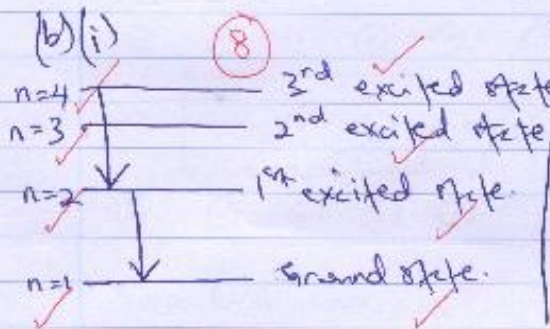 (b)(i)
8
n=4 3rd excited state
n=3 2nd excited state
n=2 1st excited state.
n=1 Ground state.